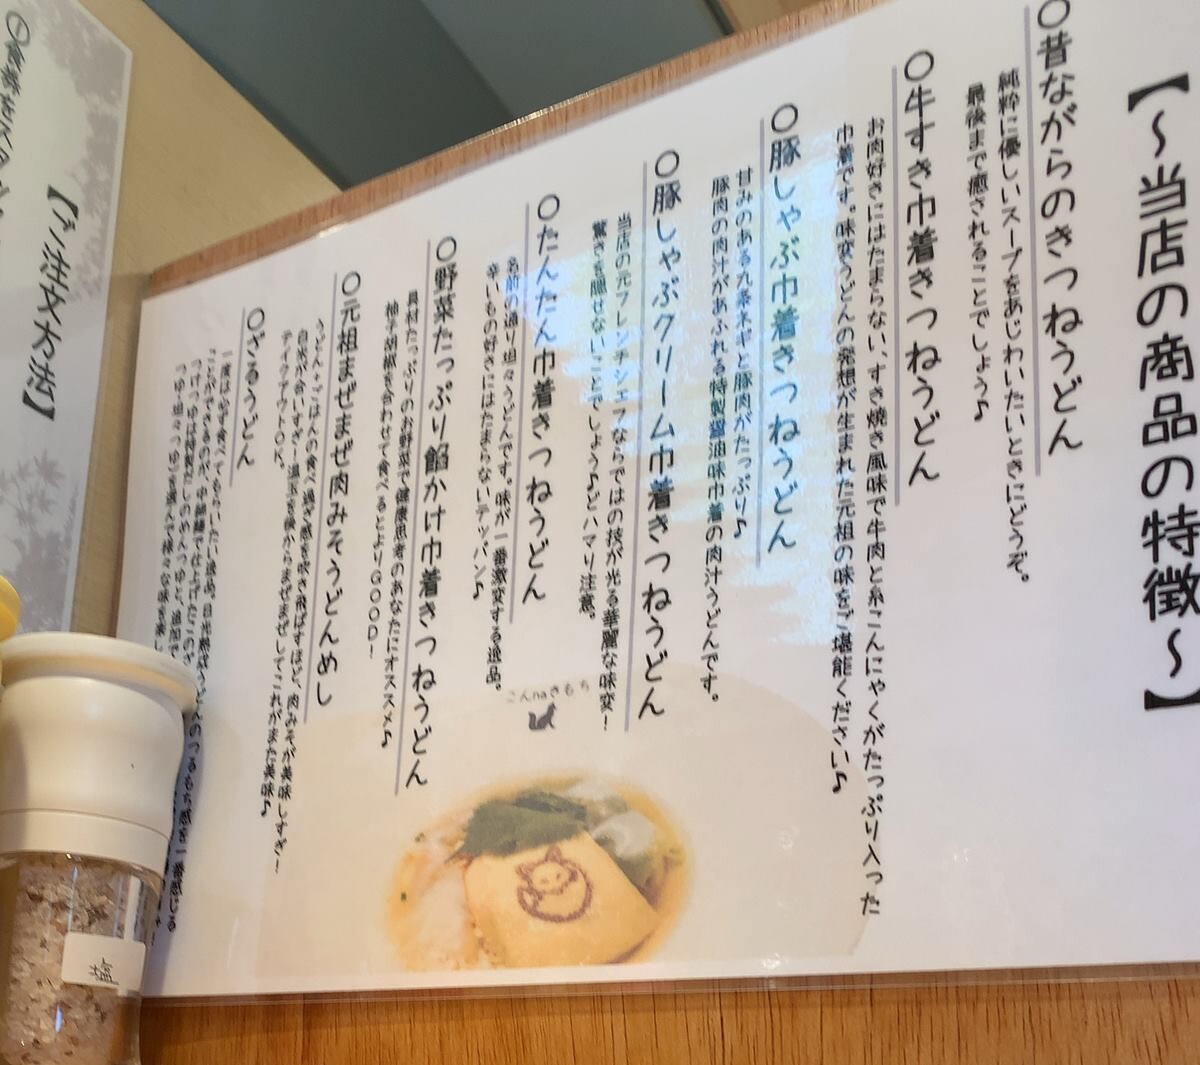 【～当店の商品の特徴～】
〇昔ながらのきつねうどん
純粋に優しいスープをあじわいたいときにどうぞ。
最後まで癒されることでしょう♪
〇牛すき巾着きつねうどん
お肉好きにはたまらない、すき焼き風味で牛肉と糸こんにゃくがたっぷり入った
巾着です。味変うどんの発想が生まれた元祖の味をご堪能ください♪
〇豚しゃぶ巾着きつねうどん
甘みのある九条ネギと豚肉がたっぷり♪
豚肉の肉汁があふれる特製醤油味巾着の肉汁うどんです。
〇豚しゃぶクリーム巾着きつねうどん
当店の元フレンチシェフならではの技が光る華麗な味変！
驚きを隠せないことでしょう♪どハマり注意。
〇たんたん巾着きつねうどん
名前の通り坦々うどんです。味が一番激変する逸品。
辛いもの好きにはたまらないテッパン♪
〇野菜たっぷり餡かけ巾着きつねうどん
具材たっぷりのお野菜で健康思考のあなたにオススメ♪
柚子胡椒を合わせて食べるとよりGOOD！
〇元祖まぜまぜ肉みそうどんめし
うどん+ごはんの食べ過ぎ感を吹き飛ばすほど、肉みそが美味しすぎ！
白米が合いすぎ！温玉を後からまぜまぜしてこれがまた美味♪
テイクアウトOK。
〇ざるうどん
一度は必ず食べてもらいたい逸品。
つるもち感を一番感じる
ことができるのが、
こんnaきもち
【ご注文方法】
①食券を
塩